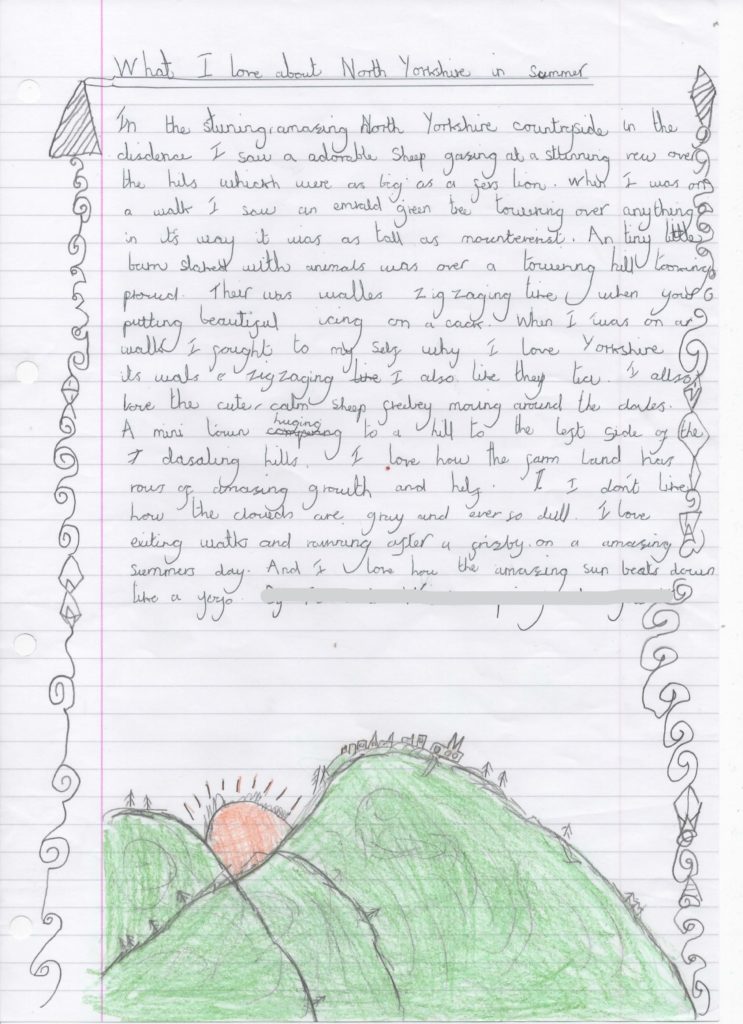 What I love about North Yorkshire in summer
In the stuning, amazing North Yorkshire countryside in the
disdence I saw a adorable sheep gasing at a stunning vew over
the hils whichh were as big as a fers lion. When I was on
a walk I saw an emrald green tee towering over anything
in it's way it was as tall as mounterenst. An tiny little
barn stared with animals was over a towering hill looming
proud. Their was walles zigzaging like when your
putting beautiful icing on a cack. When I was on a
walk I fought to my self why I love Yorkshire
its wals zigzaging like I also like they
love the cute, calm sheep freeley moving around the dales.
A mini town huging to a hill to the left side of the
dasaling hills. I love how the farm land has
rows of amasing grouth and help. I I don't like
how the clouds are gray and ever so dull. I love
exiting walks and running after a frizby on a amazing
summers day. And I love how the amazing sun beats down
like a yoyo.